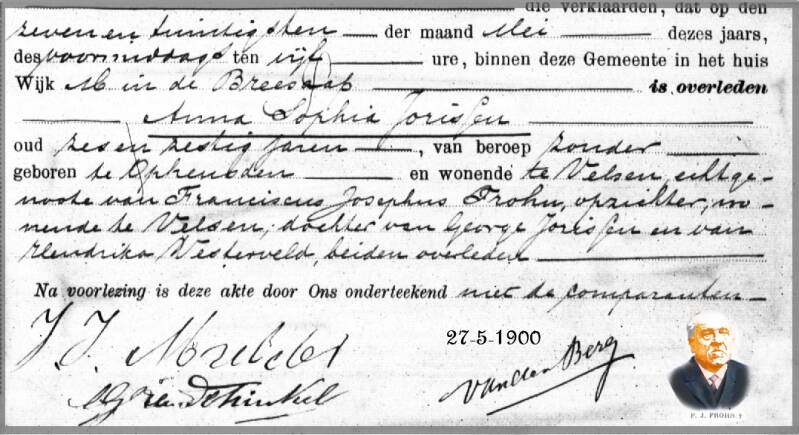 die verklaarden, dat op den
zeven en twintigsten der maand Mei dezes jaars,
des voormiddags ten vijf ure, binnen deze Gemeente in het huis
Wijk M in de Breesaap is overleden
Anna Sophia Jorissen
oud zes en zestig jaren, van beroep zonder
geboren te Opheusden en wonende te Velsen, echtge-
noote van Franciscus Josephus Frohn, opzichter, wo-
nende te Velsen; dochter van George Jorissen en van
Hendrika Westerveld, beiden overleden
Na voorlezing is deze akte door Ons onderteekend met de comparanten
J. J.
27-5-1900
van den Berg
F. J. FROHN †